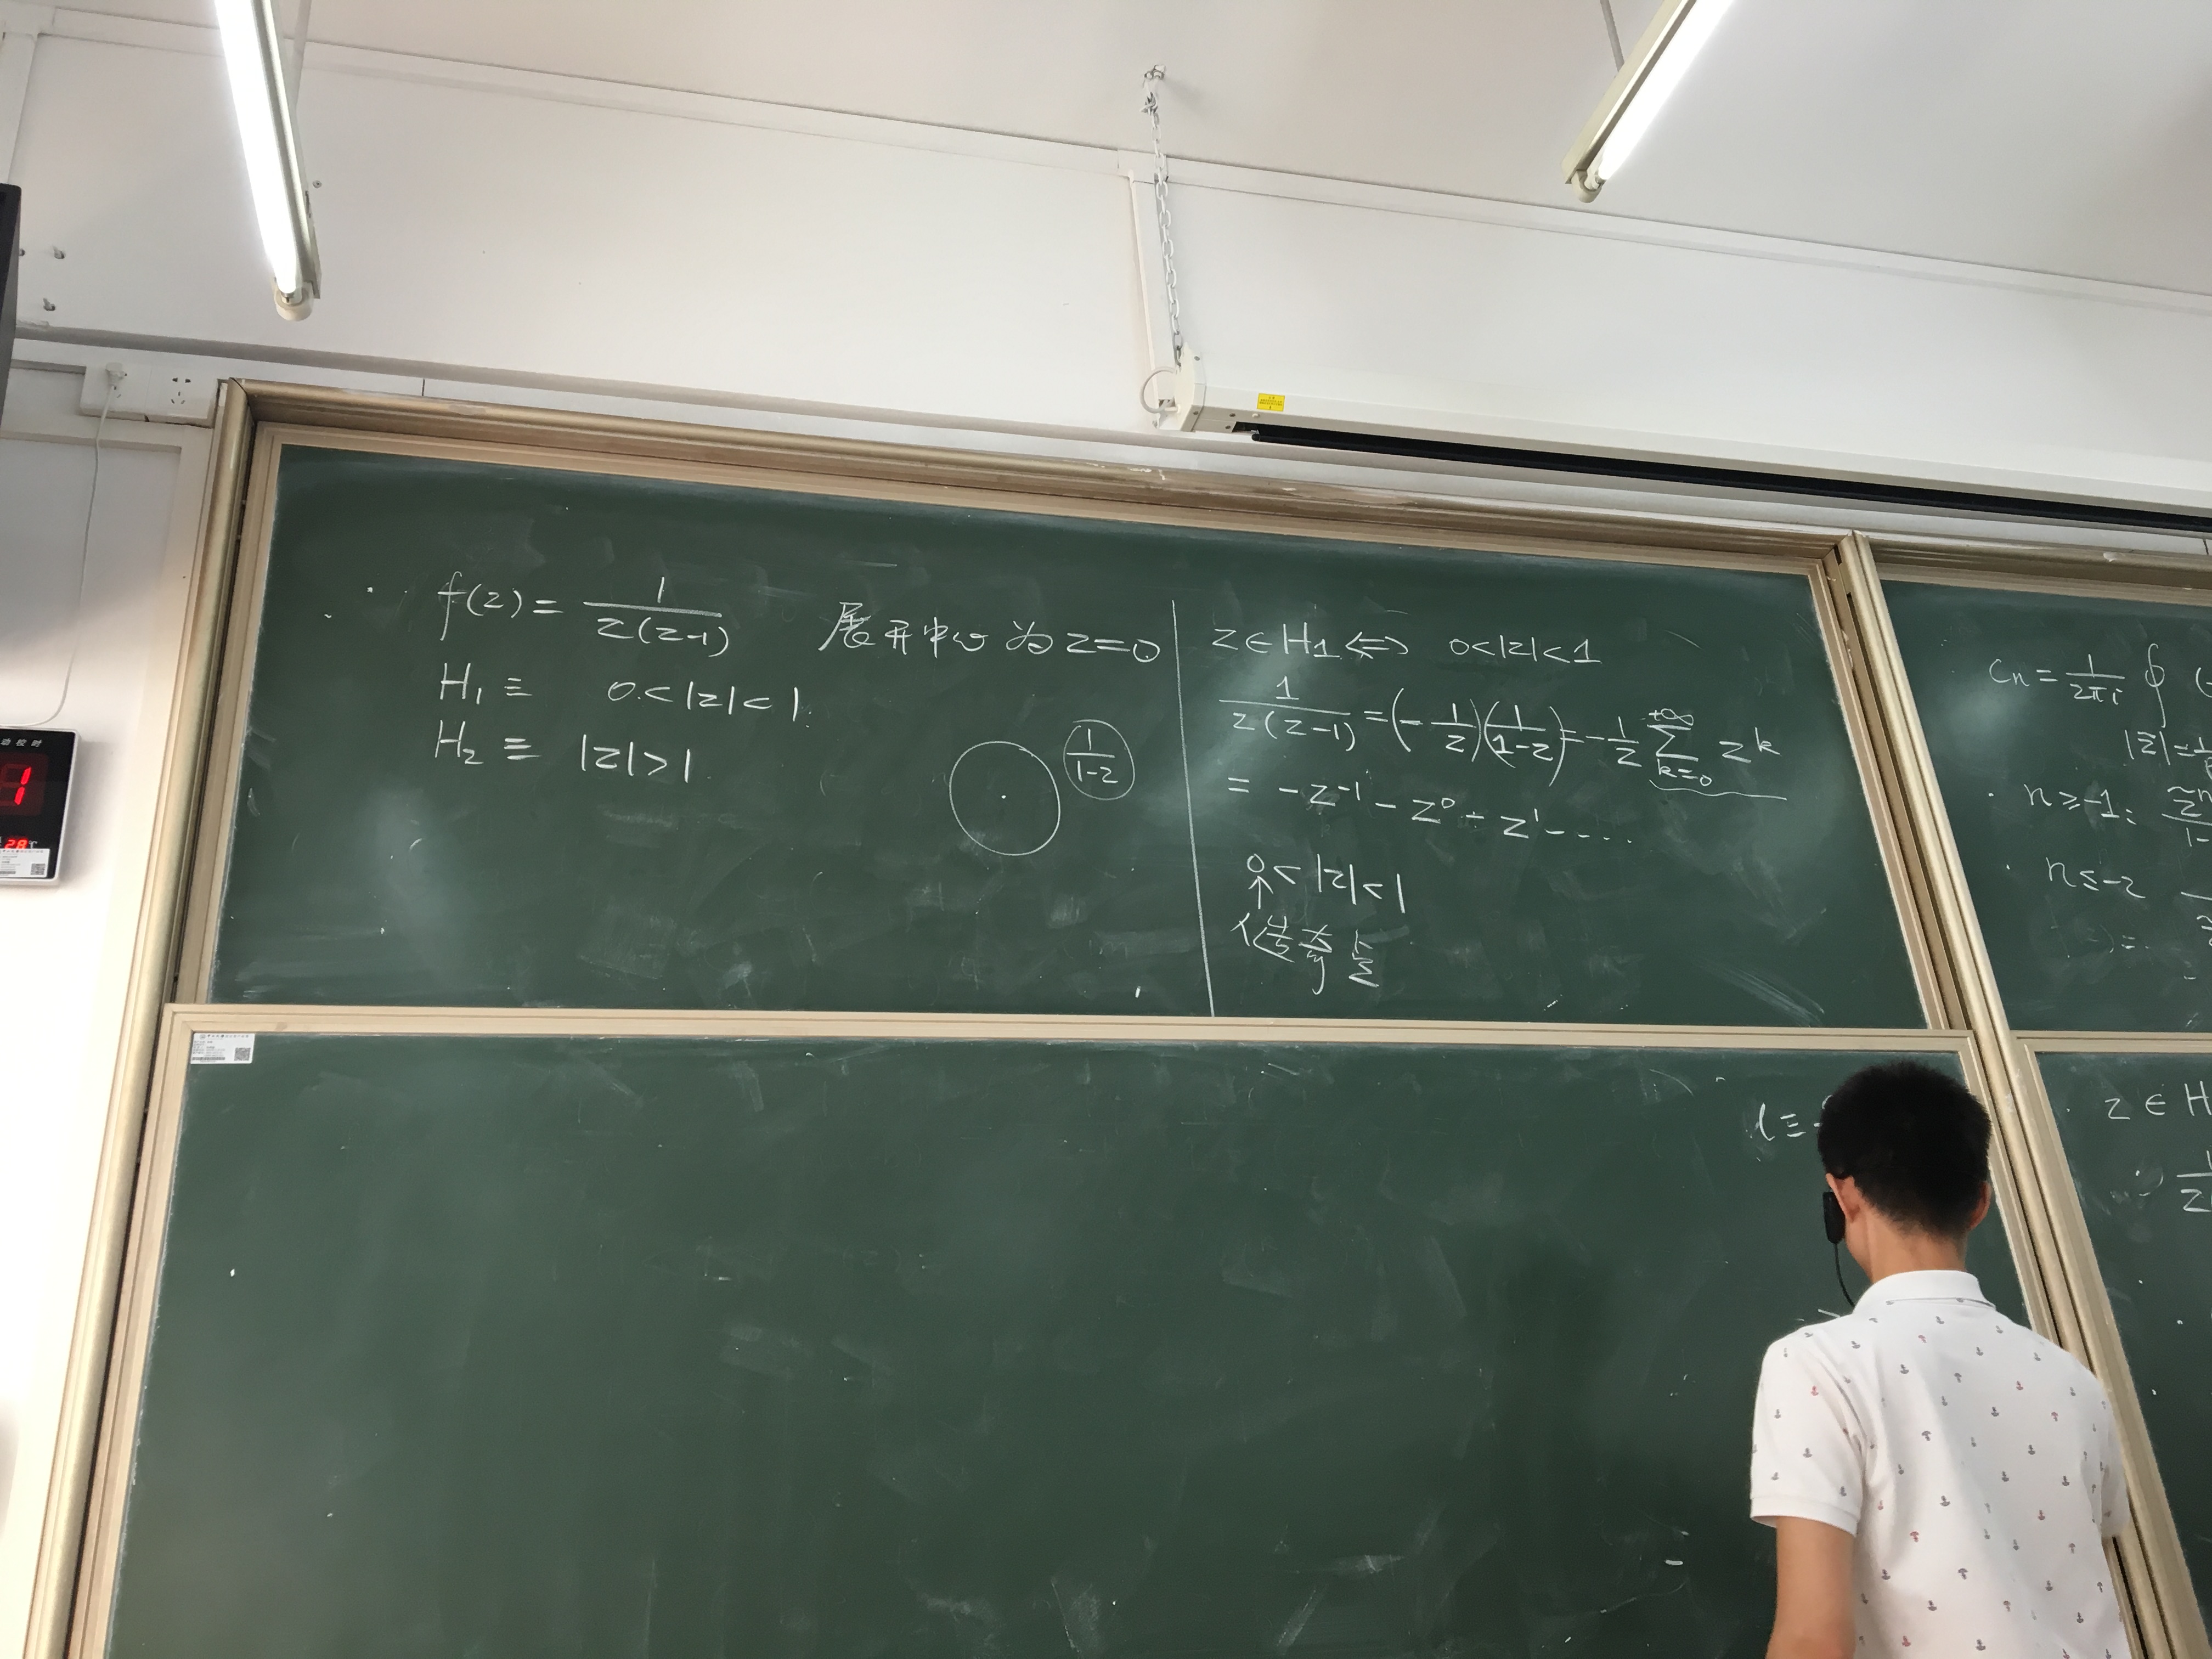 f(z) = 1/(z(z-1)) 展开中心为 z=0
H₁ ≡ 0 < |z| < 1
H₂ ≡ |z| > 1
1/(1-z)
z ∈ H₁ ⇔ 0<|z|<1
1/(z(z-1)) = (-1/z)(1/(1-z)) = -1/z ∑_{k=0}^{+∞} z^k
= -z^{-1} - z^0 - z^1 - ....
0 < |z| < 1
↑
奇点
Cₙ = 1/(2πi) ∮ (
|z̃| =
n ≥ -1:
n ≤ -2
z ∈ H
动校时
11
28